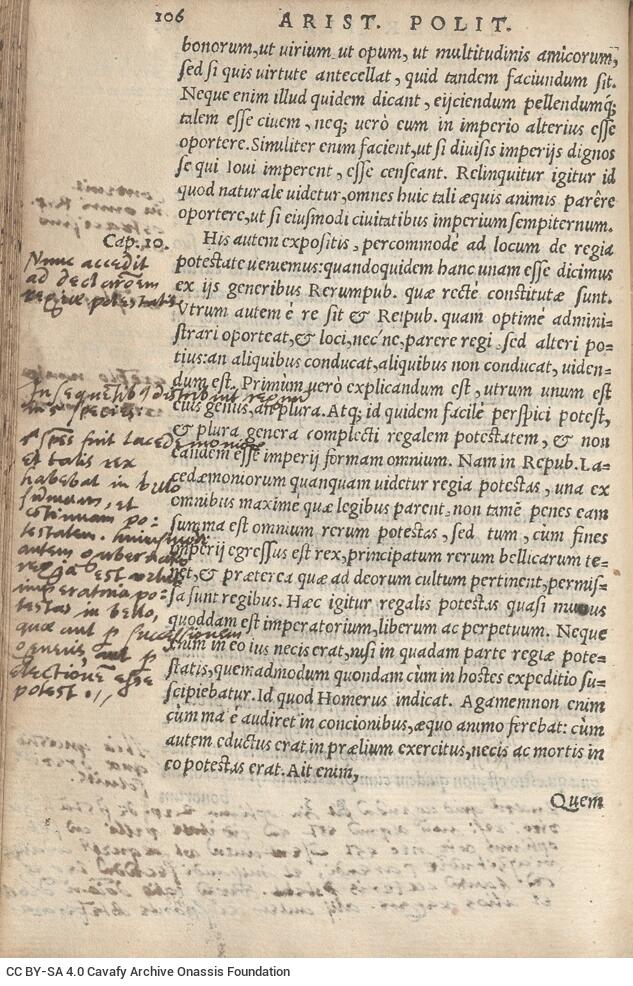 106
ARIST. POLIT.
bonorum, ut uirium, ut opum, ut multitudinis amicorum,
sed si quis uirtute antecellat, quid tandem faciundum sit.
Neque enim illud quidem dicant, eijciendum pellendumq́;
talem esse ciuem, neq; uerò eum in imperio alterius esse
oportere. Similiter enim facient, ut si diuisis imperijs dignos
se qui Ioui imperent, esse censeant. Relinquitur igitur id
quod naturale uidetur, omnes huic tali æquis animis parêre
oportere, ut si eiusmodi ciuitatibus imperium sempiternum.
Cap. 10.
His autem expositis, percommodè ad locum de regia
potestate ueniemus: quandoquidem hanc unam esse dicimus
ex ijs generibus Rerumpub. quæ rectè constitutæ sunt.
Vtrum autem è re sit & Reipub. quam optimè admini-
strari oporteat, & loci, nec ne, parere regi, sed alteri po-
tius: an aliquibus conducat, aliquibus non conducat, uiden-
dum est. Primùm uerò explicandum est, utrum unum est
eius genus, an plura. Atq; id quidem facilè perspici potest,
& plura genera complecti regalem potestatem, & non
eandem esse imperij formam omnium. Nam in Repub. La-
cedæmoniorum quanquam uidetur regia potestas, una ex
omnibus maximè quæ legibus parent, non tamẽ penes eam
summa est omnium rerum potestas, sed tum, cùm fines
imperij egressus est rex, principatum rerum bellicarum te-
net, & præterea quæ ad deorum cultum pertinent, permis-
sa sunt regibus. Hæc igitur regalis potestas quasi munus
quoddam est imperatorium, liberum ac perpetuum. Neque
enim in eo ius necis erat, nisi in quadam parte regiæ pote-
statis, quemadmodum quondam cùm in hostes expeditio su-
scipiebatur. Id quod Homerus indicat. Agamemnon enim
cùm malè audiret in concionibus, æquo animo ferebat: cùm
autem eductus erat in prælium exercitus, necis ac mortis in
eo potestas erat. Ait enim,
Quem
Nunc accedit
ad declarõem
regiæ potestatis
et talis rex
habebat in bello
potestatem.
imperatoria po-
testas in bello,
quæ aut p successionem
aut p
electionẽ esse
potest.
CC BY-SA 4.0 Cavafy Archive Onassis Foundation